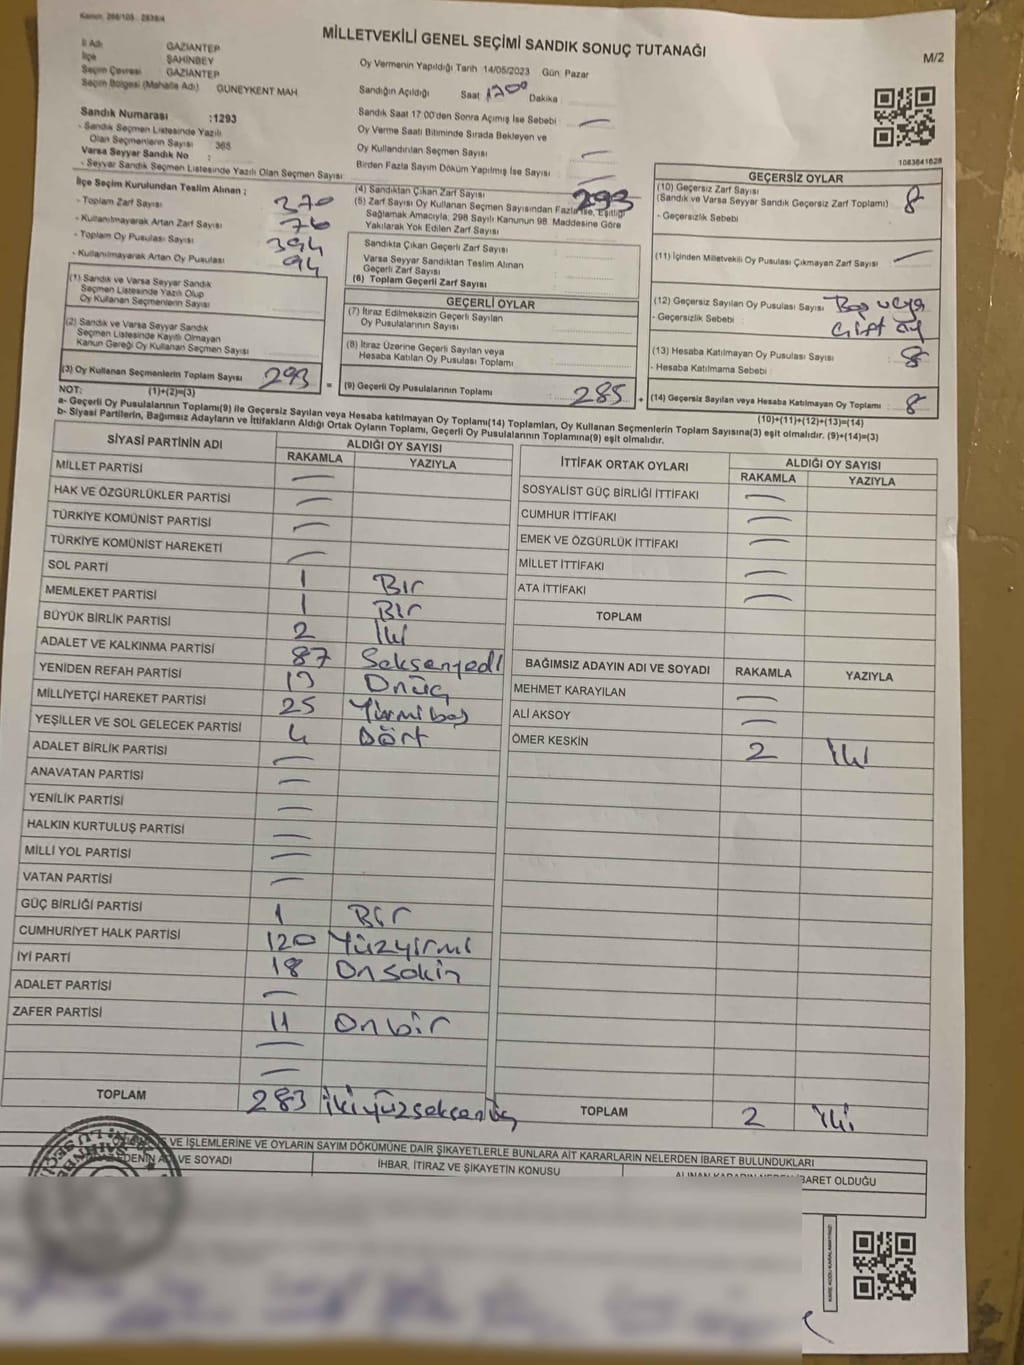 Kanun: 298/105 - 2839/4
MİLLETVEKİLİ GENEL SEÇİMİ SANDIK SONUÇ TUTANAĞI
M/2
İl Adı GAZİANTEP
İlçe ŞAHİNBEY
Seçim Çevresi GAZİANTEP
Seçim Bölgesi (Mahalle Adı) GÜNEYKENT MAH
Oy Vermenin Yapıldığı Tarih 14/05/2023 Gün: Pazar
Sandığın Açıldığı Saat 1700 Dakika
Sandık Saat 17:00'den Sonra Açmış İse Sebebi : —
Oy Verme Saati Bitiminde Sırada Bekleyen ve
Oy Kullandırılan Seçmen Sayısı : —
Birden Fazla Sayım Döküm Yapılmış İse Sayısı : —
Sandık Numarası :1293
- Sandık Seçmen Listesinde Yazılı
Olan Seçmenlerin Sayısı : 365
Varsa Seyyar Sandık No :
- Seyyar Sandık Seçmen Listesinde Yazılı Olan Seçmen Sayısı:
1083641628
İlçe Seçim Kurulundan Teslim Alınan ;
- Toplam Zarf Sayısı : 370
- Kullanılmayarak Artan Zarf Sayısı : 76
- Toplam Oy Pusulası Sayısı : 394
- Kullanılmayarak Artan Oy Pusulası : 94
(1) Sandık ve Varsa Seyyar Sandık
Seçmen Listesinde Yazılı Olup
Oy Kullanan Seçmenlerin Sayısı
(2) Sandık ve Varsa Seyyar Sandık
Seçmen Listesinde Kayıtlı Olmayan
Kanun Gereği Oy Kullanan Seçmen Sayısı
(3) Oy Kullanan Seçmenlerin Toplam Sayısı : 293 =
(4) Sandıktan Çıkan Zarf Sayısı 293
(5) Zarf Sayısı Oy Kullanan Seçmen Sayısından Fazla İse, Eşitliği
Sağlamak Amacıyla, 298 Sayılı Kanunun 98. Maddesine Göre
Yakılarak Yok Edilen Zarf Sayısı
Sandıkta Çıkan Geçerli Zarf Sayısı
Varsa Seyyar Sandıktan Teslim Alınan
Geçerli Zarf Sayısı
(6) Toplam Geçerli Zarf Sayısı
GEÇERLİ OYLAR
(7) İtiraz Edilmeksizin Geçerli Sayılan
Oy Pusulalarının Sayısı
(8) İtiraz Üzerine Geçerli Sayılan veya
Hesaba Katılan Oy Pusulası Toplamı
(9) Geçerli Oy Pusulalarının Toplamı : 285 +
GEÇERSİZ OYLAR
(10) Geçersiz Zarf Sayısı 8
(Sandık ve Varsa Seyyar Sandık Geçersiz Zarf Toplamı)
- Geçersizlik Sebebi
(11) İçinden Milletvekili Oy Pusulası Çıkmayan Zarf Sayısı —
(12) Geçersiz Sayılan Oy Pusulası Sayısı Boş veya
- Geçersizlik Sebebi Çift oy
(13) Hesaba Katılmayan Oy Pusulası Sayısı : 8
- Hesaba Katılmama Sebebi
(14) Geçersiz Sayılan veya Hesaba Katılmayan Oy Toplamı : 8
NOT: (1)+(2)=(3)
(10)+(11)+(12)+(13)=(14)
a- Geçerli Oy Pusulalarının Toplamı(9) ile Geçersiz Sayılan veya Hesaba katılmayan Oy Toplamı(14) Toplamları, Oy Kullanan Seçmenlerin Toplam Sayısına(3) eşit olmalıdır. (9)+(14)=(3)
b- Siyasi Partilerin, Bağımsız Adayların ve İttifakların Aldığı Ortak Oyların Toplamı, Geçerli Oy Pusulalarının Toplamına(9) eşit olmalıdır.
SİYASİ PARTİNİN ADI ALDIĞI OY SAYISI
RAKAMLA YAZIYLA
MİLLET PARTİSİ —
HAK VE ÖZGÜRLÜKLER PARTİSİ —
TÜRKİYE KOMÜNİST PARTİSİ —
TÜRKİYE KOMÜNİST HAREKETİ —
SOL PARTİ 1 Bir
MEMLEKET PARTİSİ 1 Bir
BÜYÜK BİRLİK PARTİSİ 2 İki
ADALET VE KALKINMA PARTİSİ 87 Seksenyedi
YENİDEN REFAH PARTİSİ 13 Onüç
MİLLİYETÇİ HAREKET PARTİSİ 25 Yirmibeş
YEŞİLLER VE SOL GELECEK PARTİSİ 4 Dört
ADALET BİRLİK PARTİSİ —
ANAVATAN PARTİSİ —
YENİLİK PARTİSİ —
HALKIN KURTULUŞ PARTİSİ —
MİLLİ YOL PARTİSİ —
VATAN PARTİSİ —
GÜÇ BİRLİĞİ PARTİSİ 1 Bir
CUMHURİYET HALK PARTİSİ 120 Yüzyirmi
İYİ PARTİ 18 Onsekiz
ADALET PARTİSİ —
ZAFER PARTİSİ 11 Onbir
—
—
TOPLAM 283 İkiyüzseksenüç
İTTİFAK ORTAK OYLARI ALDIĞI OY SAYISI
RAKAMLA YAZIYLA
SOSYALİST GÜÇ BİRLİĞİ İTTİFAKI —
CUMHUR İTTİFAKI —
EMEK VE ÖZGÜRLÜK İTTİFAKI —
MİLLET İTTİFAKI —
ATA İTTİFAKI —
TOPLAM
BAĞIMSIZ ADAYIN ADI VE SOYADI RAKAMLA YAZIYLA
MEHMET KARAYILAN —
ALİ AKSOY —
ÖMER KESKİN 2 İki
TOPLAM 2 İki
VE İŞLEMLERİNE VE OYLARIN SAYIM DÖKÜMÜNE DAİR ŞİKAYETLERLE BUNLARA AİT KARARLARIN NELERDEN İBARET BULUNDUKLARI
EDENİN ADI VE SOYADI İHBAR, İTİRAZ VE ŞİKAYETİN KONUSU ALINAN KARARIN NEDEN İBARET OLDUĞU
KARE KODU KARALAMAYINIZ!